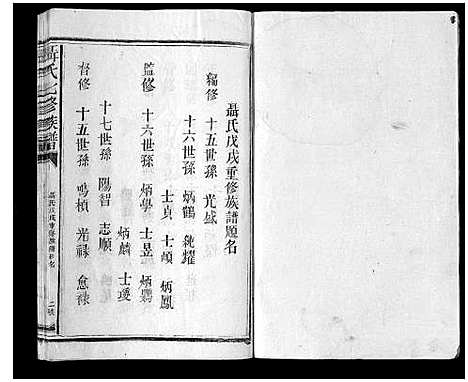 聶氏戊戌重修族譜題名
編修 十五世孫 光盛
十六世孫 炳鶴 維耀
士貞 士頎 炳鳳
監修 十六世孫 炳學 士昱 炳鸚
炳麟 士璦
十七世孫 陽智 志順
督修 十五世孫 鳴楨 光祿 愈祿
聶氏七修族譜
聶氏戊戌重修族譜題名